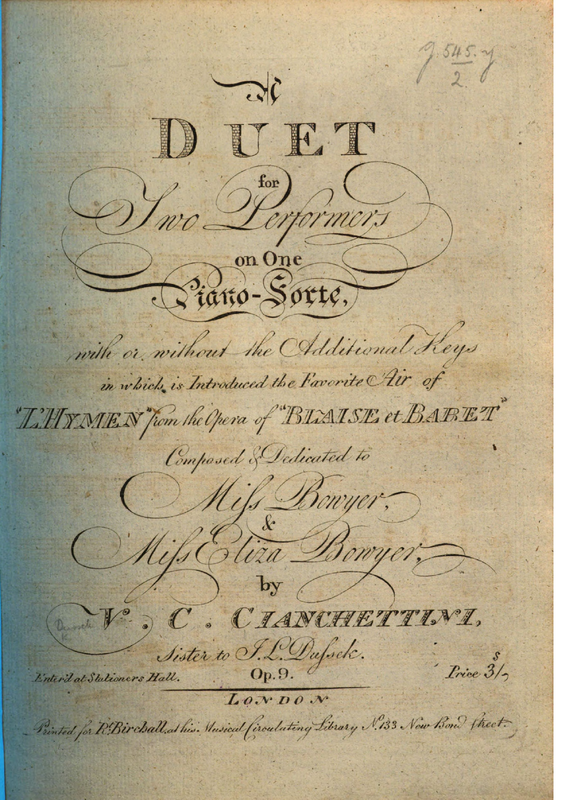 g. 545. y
2
A
DUET
for
Two Performers
on One
Piano-Forte,
with or without the Additional Keys
in which is Introduced the Favorite Air of
"L'HYMEN" from the Opera of "BLAISE et BABET"
Composed & Dedicated to
Miſs Bowyer,
&
Miſs Eliza Bowyer,
by
V. C. CIANCHETTINI,
Sister to J. L. Duſsek.
Enter'd at Stationers Hall. Op. 9. Price 3s/-
LONDON
Printed for Rt. Birchall, at his Musical Circulating Library No. 133 New Bond Street.